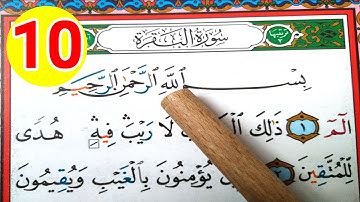 10
سورة البقرة
بِسْمِ اللَّهِ الرَّحْمَٰنِ الرَّحِيمِ
الٓمٓ ١ ذَٰلِكَ لَا رَيْبَ فِيهِ هُدًى
لِّلْمُتَّقِينَ ٢ يُؤْمِنُونَ بِالْغَيْبِ وَيُقِيمُونَ